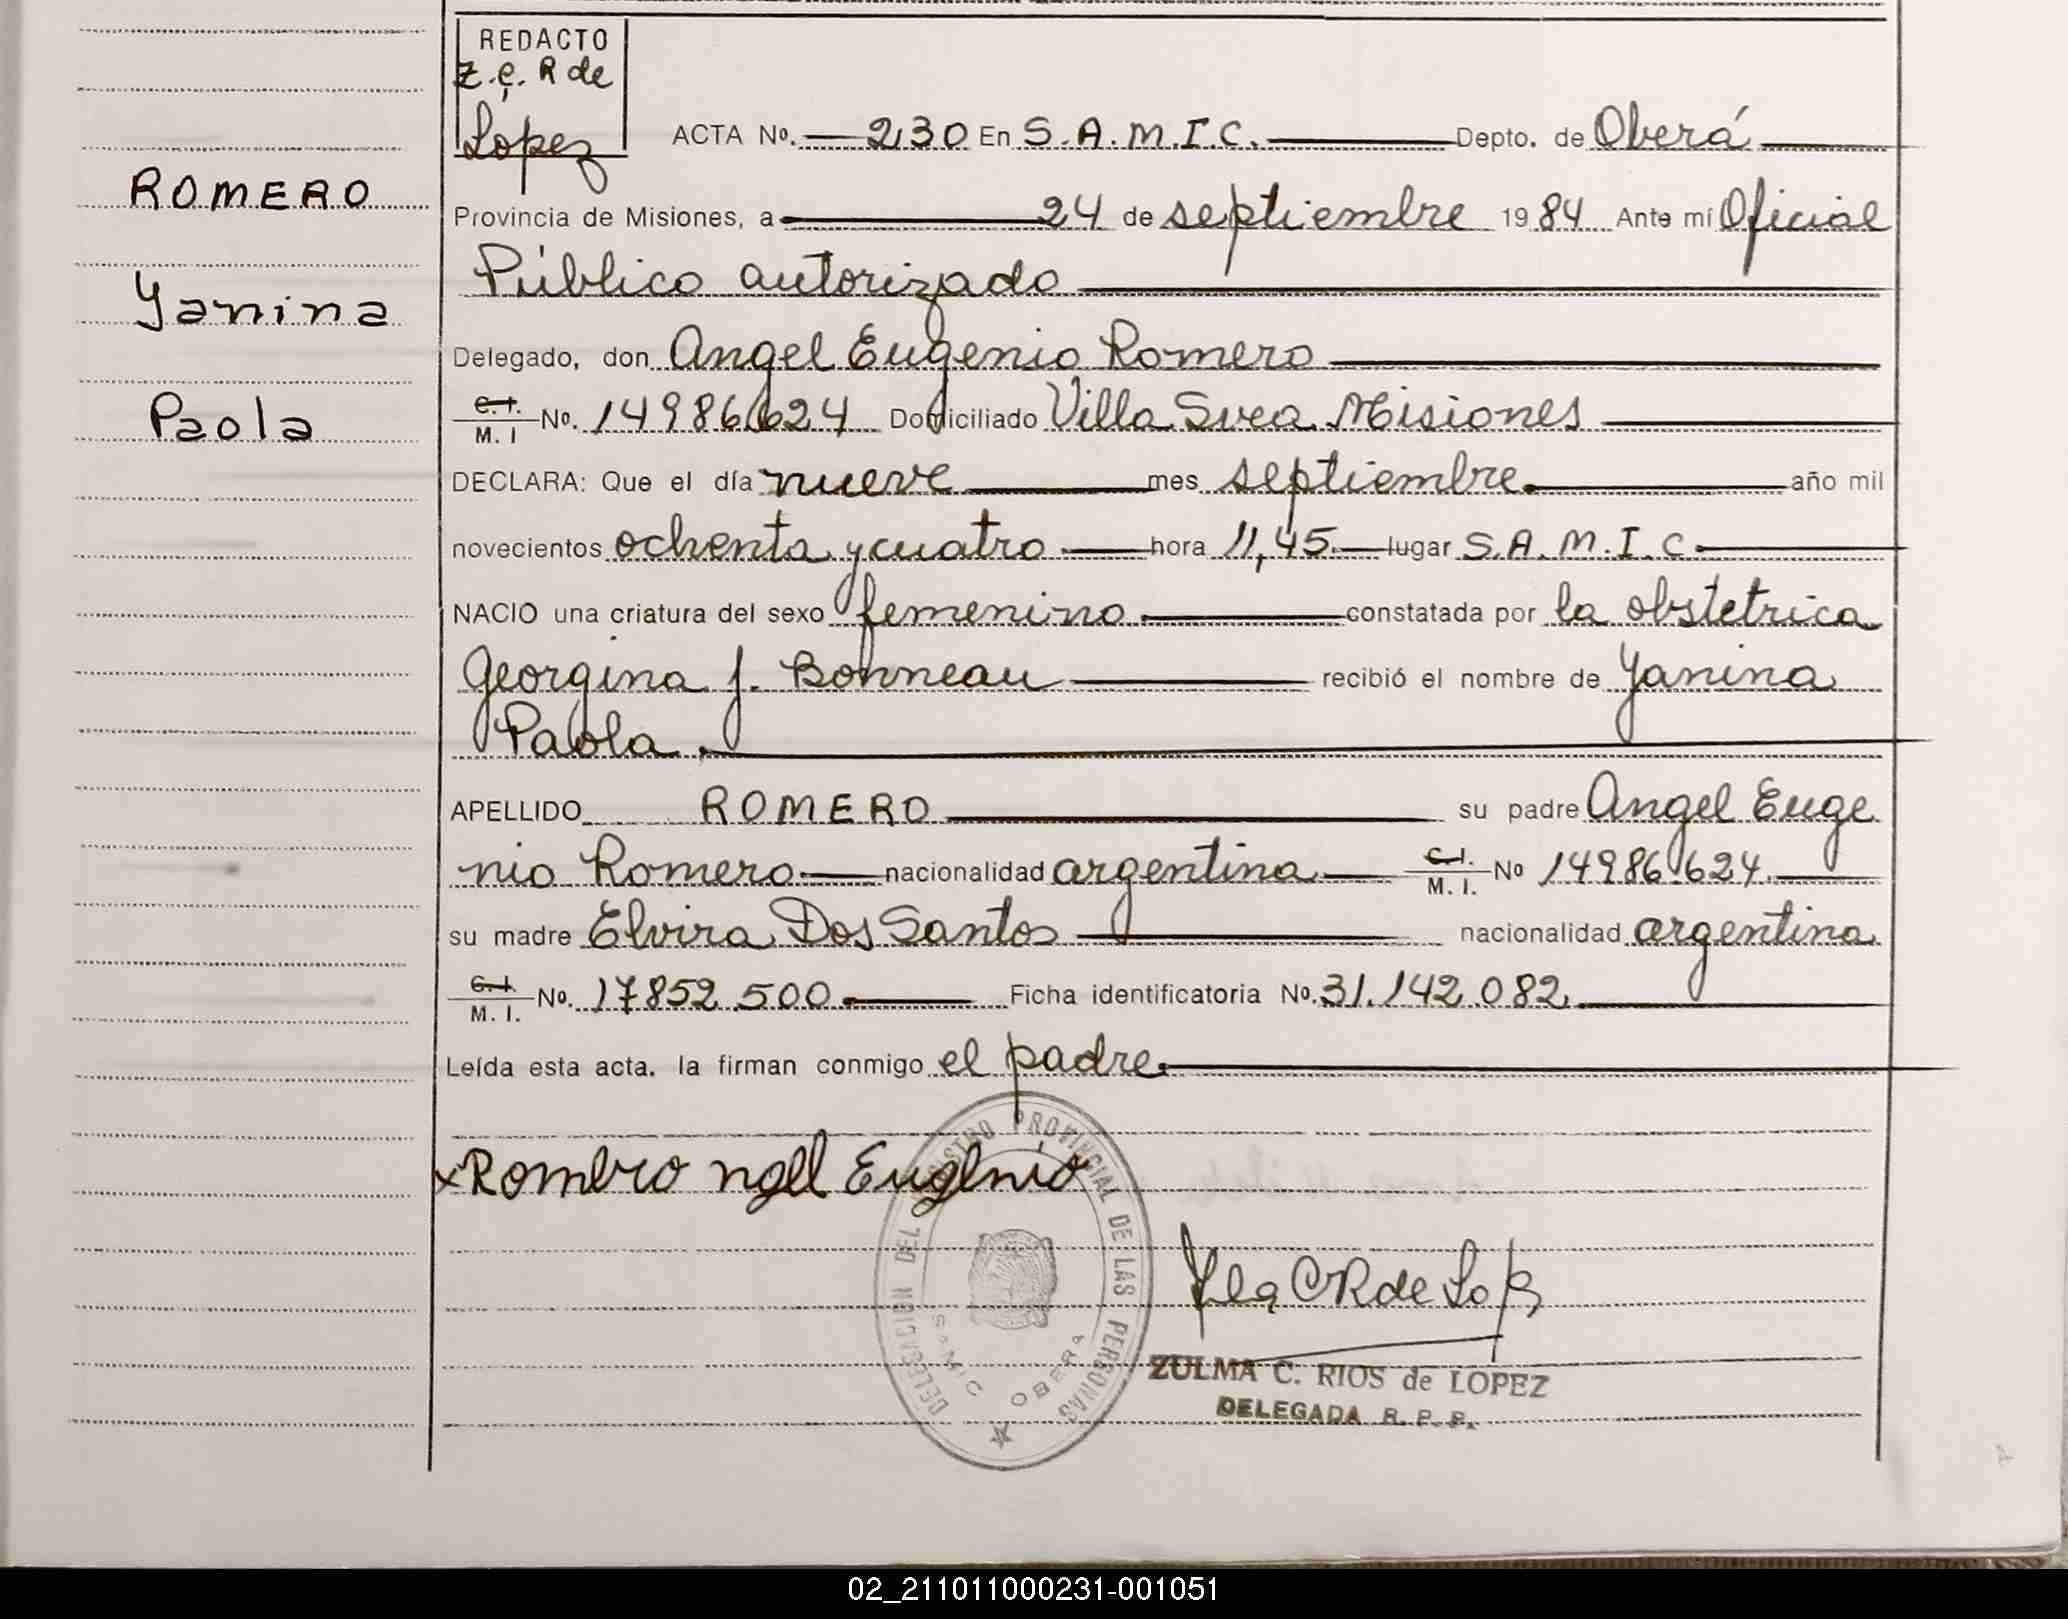 REDACTO
Z.C. R de
Lopez
ACTA No. 230 En S.A.M.I.C. Depto. de Oberá
ROMERO
Provincia de Misiones, a 24 de septiembre 1984 Ante mí Oficial
Público autorizado
Yanina
Delegado, don Angel Eugenio Romero
C.I. M.I No. 14986624 Domiciliado Villa Svea Misiones
Paola
DECLARA: Que el día nueve mes septiembre. año mil
novecientos ochenta y cuatro hora 11,45. lugar S.A.M.I.C.
NACIO una criatura del sexo femenino constatada por la obstetrica
Georgina J. Bonneau recibió el nombre de Yanina
Paola.
APELLIDO ROMERO su padre Angel Euge
nio Romero nacionalidad argentina C.I. M.I. No 14986.624.
su madre Elvira Dos Santos nacionalidad argentina
C.I. M.I. No. 17852.500. Ficha identificatoria No. 31.142.082.
Leída esta acta. la firman conmigo el padre.
x Romero ngel Eugenio
DELEGACION DEL REGISTRO PROVINCIAL DE LAS PERSONAS
SAMIC OBERA
ZULMA C. RIOS de LOPEZ
DELEGADA R. P. P.
02_211011000231-001051